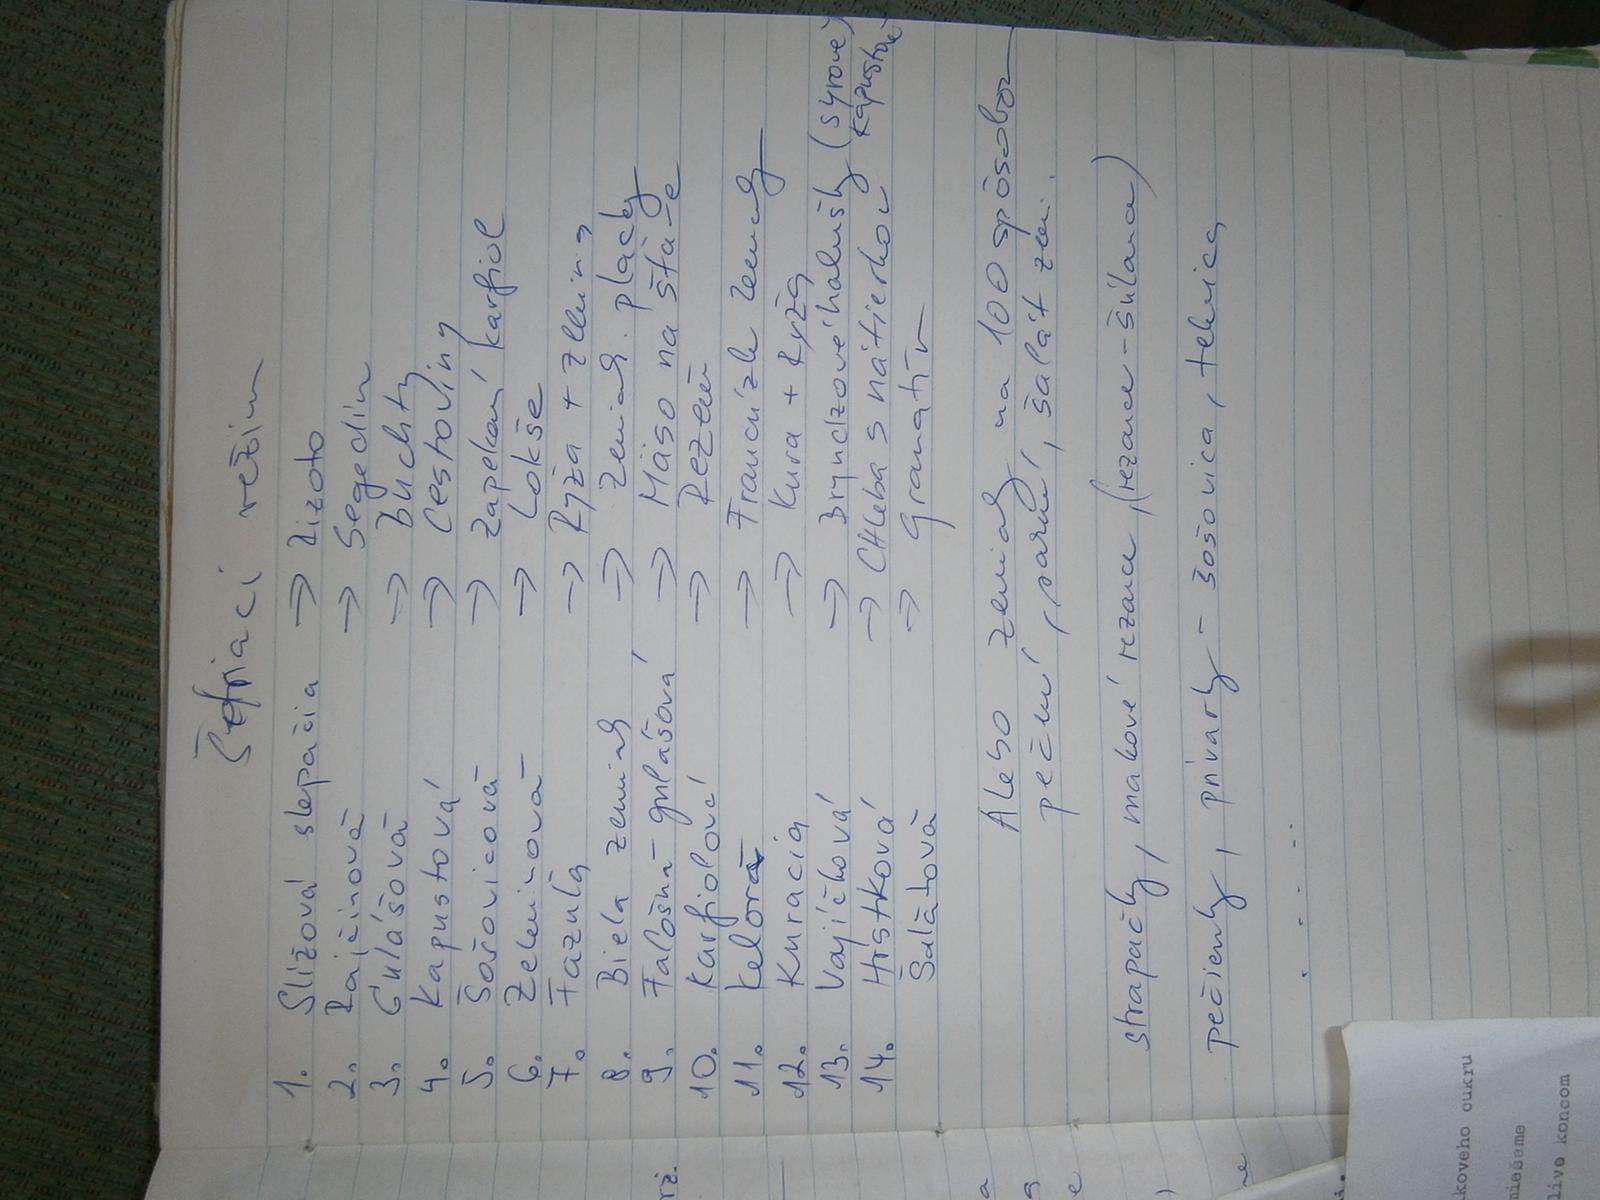 Šetriaci režim
1. Slížová slepačia → Rizoto
2. Rajčinová → Segedín
3. Gulášová → Buchty
4. Kapustová → Cestoviny
5. Šošovicová → Zapekaný karfiol
6. Zeleninová → Lokše
7. Fazuľa → Ryža + zelenina
8. Biela zemiak → Zemiak. placky
9. Falošná-gulášová → Mäso na šťave
10. Karfiolová → Rezeň
11. Kelová → Francúzke zemiaky
12. Kuracia → Kura + Ryža
13. Vajíčková → Bryndzové halušky (syrové,
kapustové
14. Hŕstková → CHleba s nátierkou
Šalátová → Granatír
Alebo zemiaky na 100 spôsobov
pečení, parní, šalát zem.
strapačky, makové rezance, (rezance-šúľance)
pečienky, prívarky - šošovica, tekvica,
. . . .
kového cukru
miešame
livo koncom
rž.